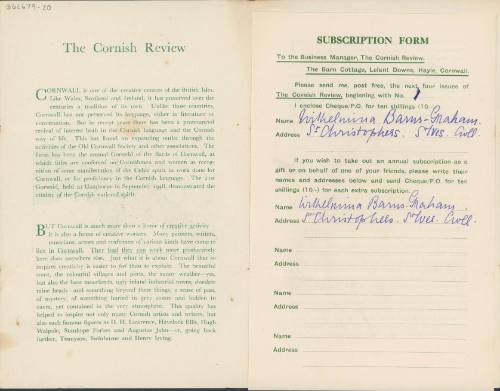 BGG679-20
The Cornish Review
CORNWALL is one of the creative centres of the British Isles.
Like Wales, Scotland and Ireland, it has preserved over the
centuries a tradition of its own. Unlike those countries,
Cornwall has not preserved its language, either in literature or
conversation. But in recent years there has been a pronounced
revival of interest both in the Cornish language and the Cornish
way of life. This has found an expanding outlet through the
activities of the Old Cornwall Society and other associations. The
focus has been the annual Gorsedd of the Bards of Cornwall, at
which titles are conferred on Cornishmen and women in recog-
nition of some manifestation of the Celtic spirit in work done for
Cornwall, or for proficiency in the Cornish language. The 21st
Gorsedd, held at Camborne in September 1948, demonstrated the
vitality of the Cornish national spirit.
BUT Cornwall is much more than a home of creative activity
it is also a home of creative workers. Many painters, writers,
musicians, actors and craftsmen of various kinds have come to
live in Cornwall. They find they can work more productively
here than anywhere else. Just what it is about Cornwall that so
inspires creativity is easier to feel than to explain. The beautiful
coast, the colourful villages and ports, the warm weather—yes,
but also the bare moorlands, ugly inland industrial towns, desolate
mine heads—and something beyond these things, a sense of past,
of mystery, of something buried in grey stones and hidden in
caves, yet contained in the very atmosphere. This quality has
helped to inspire not only many Cornish artists and writers, but
also such famous figures as D. H. Lawrence, Havelock Ellis, Hugh
Walpole, Stanhope Forbes and Augustus John—or, going back
further, Tennyson, Swinburne and Henry Irving.
SUBSCRIPTION FORM
To the Business Manager, The Cornish Review,
The Barn Cottage, Lelant Downs, Hayle, Cornwall.
Please send me, post free, the next four issues of
The Cornish Review, beginning with No. 1
I enclose Cheque/P.O. for ten shillings (10/-)
Name Wilhelmina Barns-Graham.
Address St Christophers. St Ives. Cwll.
If you wish to take out an annual subscription as a
gift or on behalf of one of your friends, please write their
names and addresses below and send Cheque/P.O. for ten
shillings (10/-) for each extra subscription.
Name Wilhelmina Barns-Graham.
Address St Christophers. St Ives. Cwll.
Name
Address
Name
Address
Name
Address